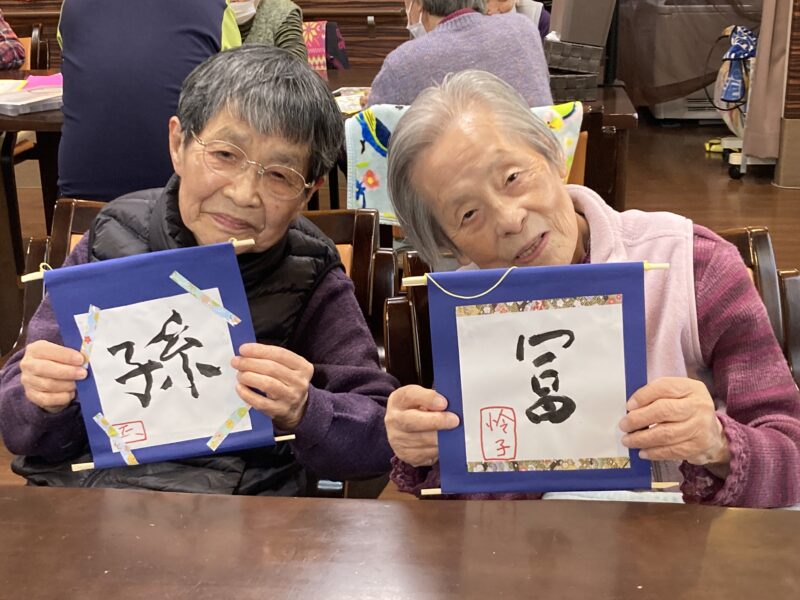 孫
冨
怜子